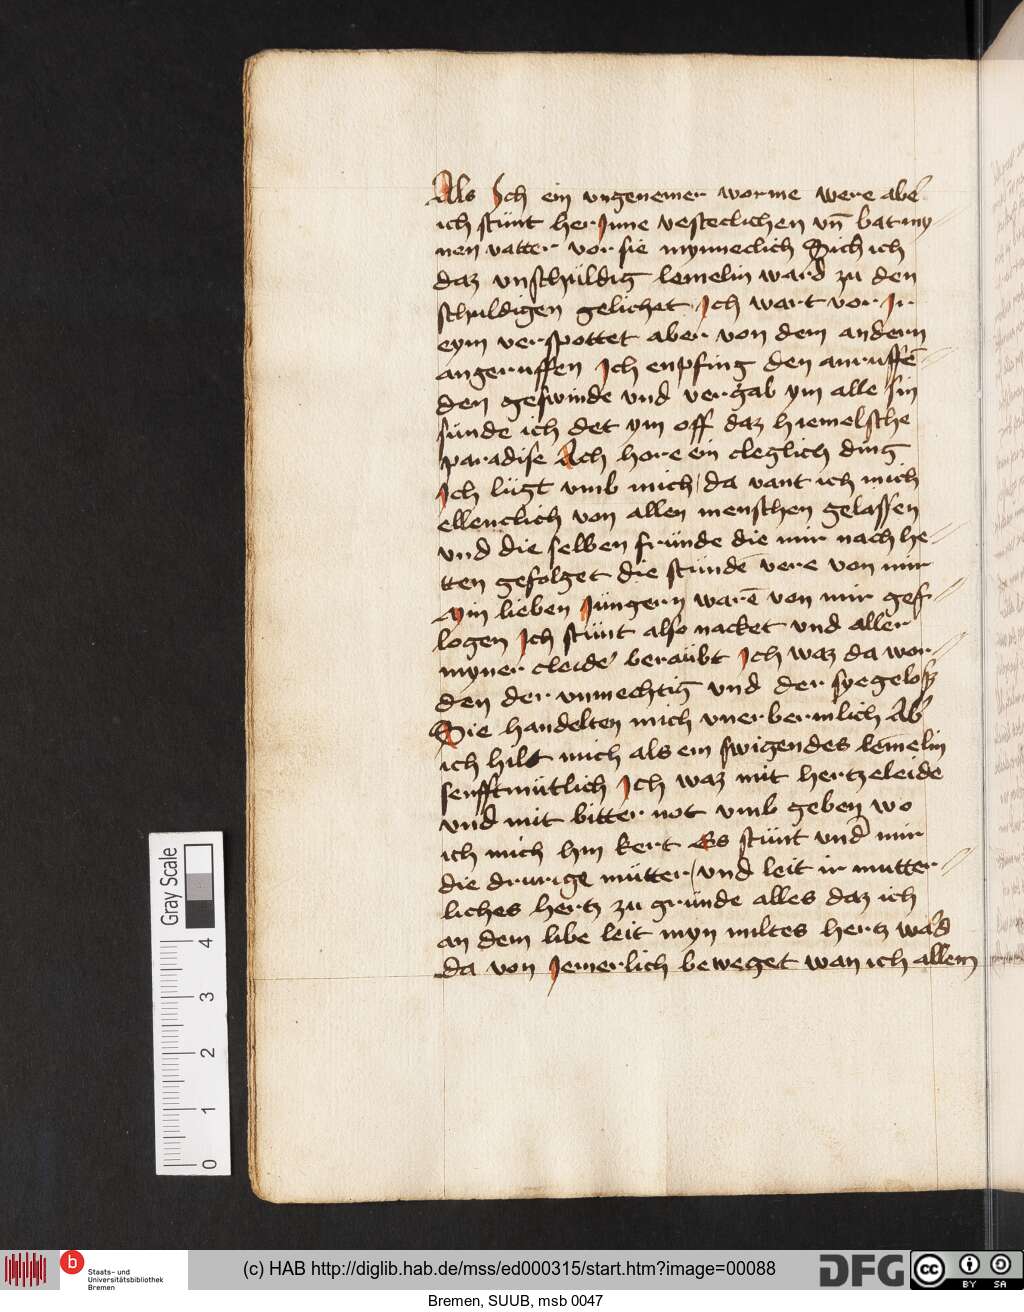 Als Ich ein vngenemer worme were abe͛
ich stůnt her Inne vesteclichen vn̄ bat my
nen vatter vor sie mynneclich Sich ich
daz vnschuldig lemelin ward zu den
schuldigen gelichet Ich wart vor Ir
eym verspottet aber von dem andern
angeruffen Ich enpfing den anruffē
den geswinde vnd vergab ym alle sin
sunde ich det ym off daz hiemelsche
paradise Ach hore ein cleglich ding
Ich lůgt vmb mich / da vant ich mich
ellenclich von allen menschen gelassen
vnd die selben fründe die mir nach he
tten gefolget die stundē vere von mir
Myn lieben Jungern warē von mir gef
logen Ich stůnt also nacket vnd aller
myner cleide beraůbt Ich waz da wor
den der vnmechtig vnd der syegeloß
Die handelten mich vnerbermlich Ab͛
ich hilt mich als ein swigendes lemelin
senfftmůtlich Ich waz mit hertzeleide
vnd mit bitter not vmb geben wo
ich mich hin kert Es stůnt vnd͛ mir
die drurige můtter / vnd leit ir mutter
liches hertz zu grunde alles daz ich
an dem libe leit myn miltes hertz wa͛d
da von Iemerlich beweget wan ich allem
Gray Scale
4
3
2
1
0
b
Staats- und
Universitätsbibliothek
Bremen
(c) HAB http://diglib.hab.de/mss/ed000315/start.htm?image=00088
DFG
cc
BY SA
Bremen, SUUB, msb 0047